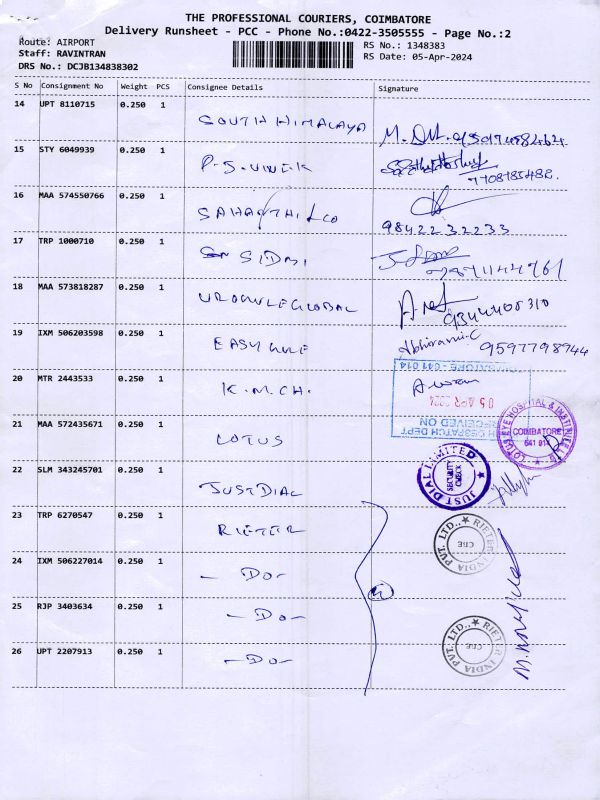 THE PROFESSIONAL COURIERS, COIMBATORE
Delivery Runsheet - PCC - Phone No.:0422-3505555 - Page No.:2
Route: AIRPORT
Staff: RAVINTRAN
DRS No.: DCJB134838302
RS No.: 1348383
RS Date: 05-Apr-2024
S No Consignment No Weight PCS Consignee Details Signature
14 UPT 8110715 0.250 1 SOUTH HIMALAYA
15 STY 6049939 0.250 1 P.S. VIVEK 7708785482.
16 MAA 574550766 0.250 1 98422 32233
17 TRP 1000710 0.250 1 SIDBI
18 MAA 573818287 0.250 1 9344408310
19 IXM 506203598 0.250 1 Abhirami-C 9597798944
20 MTR 2443533 0.250 1 K.M.CH.
COIMBATORE - 641 014
05 APR 2024
RECEIVED ON
DISPATCH DEPT
21 MAA 572435671 0.250 1 LOTUS
LOTUS EYE HOSPITAL & INSTITUTE LTD
COIMBATORE
641 014
22 SLM 343245701 0.250 1 JUSTDIAL
JUST DIAL LIMITED
SECURITY CHECK
23 TRP 6270547 0.250 1 RIETER
RIETER INDIA PVT. LTD.,
CBE
24 IXM 506227014 0.250 1 - DO -
25 RJP 3403634 0.250 1 - DO -
26 UPT 2207913 0.250 1 - DO -
RIETER INDIA PVT. LTD.,
CBE